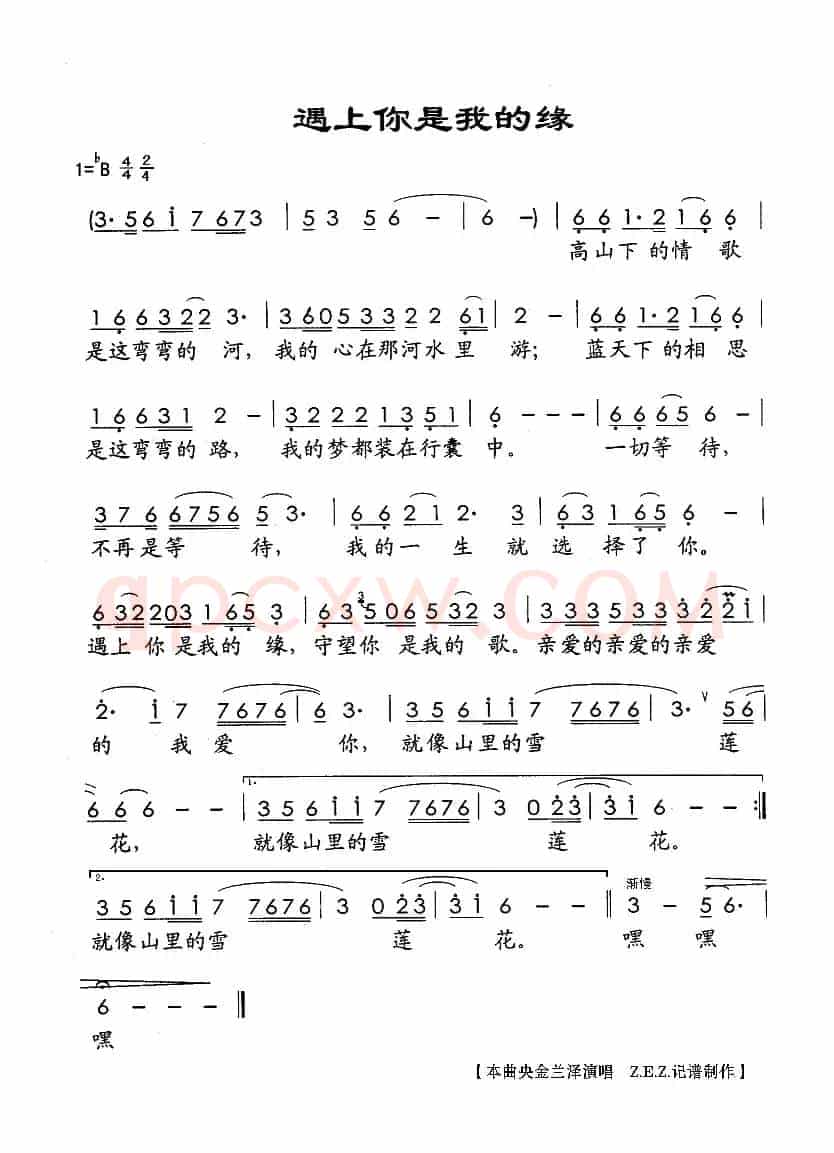 遇上你是我的缘
1=ᵇB 4/4 2/4
(3· 5 6 i 7 6 7 3 | 5 3 5 6 - | 6 -) | 6 6 1· 2 1 6 6 |
高山下的情歌
1 6 6 3 2 2 3· | 3 6 0 5 3 3 2 2 6 1 | 2 - | 6 6 1· 2 1 6 6 |
是这弯弯的河,我的心在那河水里游;蓝天下的相思
1 6 6 3 1 2 - | 3 2 2 2 1 3 5 1 | 6 - - - | 6 6 6 5 6 - |
是这弯弯的路,我的梦都装在行囊中。一切等待,
3 7 6 6 7 5 6 5 3· | 6 6 2 1 2· 3 | 6 3 1 6 5 6 - |
不再是等待,我的一生就选择了你。
qpcxw.COM
6 3 2 2 0 3 1 6 5 3 | 6 3 3 5 0 6 5 3 2 3 | 3 3 3 5 3 3 3 2 2 i |
遇上你是我的缘,守望你是我的歌。亲爱的亲爱的亲爱
2· i 7 7 6 7 6 | 6 3· | 3 5 6 i i 7 7 6 7 6 | 3· V 5 6 |
的我爱你,就像山里的雪莲
6 6 6 - - | 1. 3 5 6 i i 7 7 6 7 6 | 3 0 2 3 | 3 i 6 - - :‖
花,就像山里的雪莲花。
2. 3 5 6 i i 7 7 6 7 6 | 3 0 2 3 | 3 i 6 - - ‖ 渐慢 3 - 5 6· |
就像山里的雪莲花。嘿嘿
6 - - - ‖
嘿
【本曲央金兰泽演唱 Z.E.Z.记谱制作】